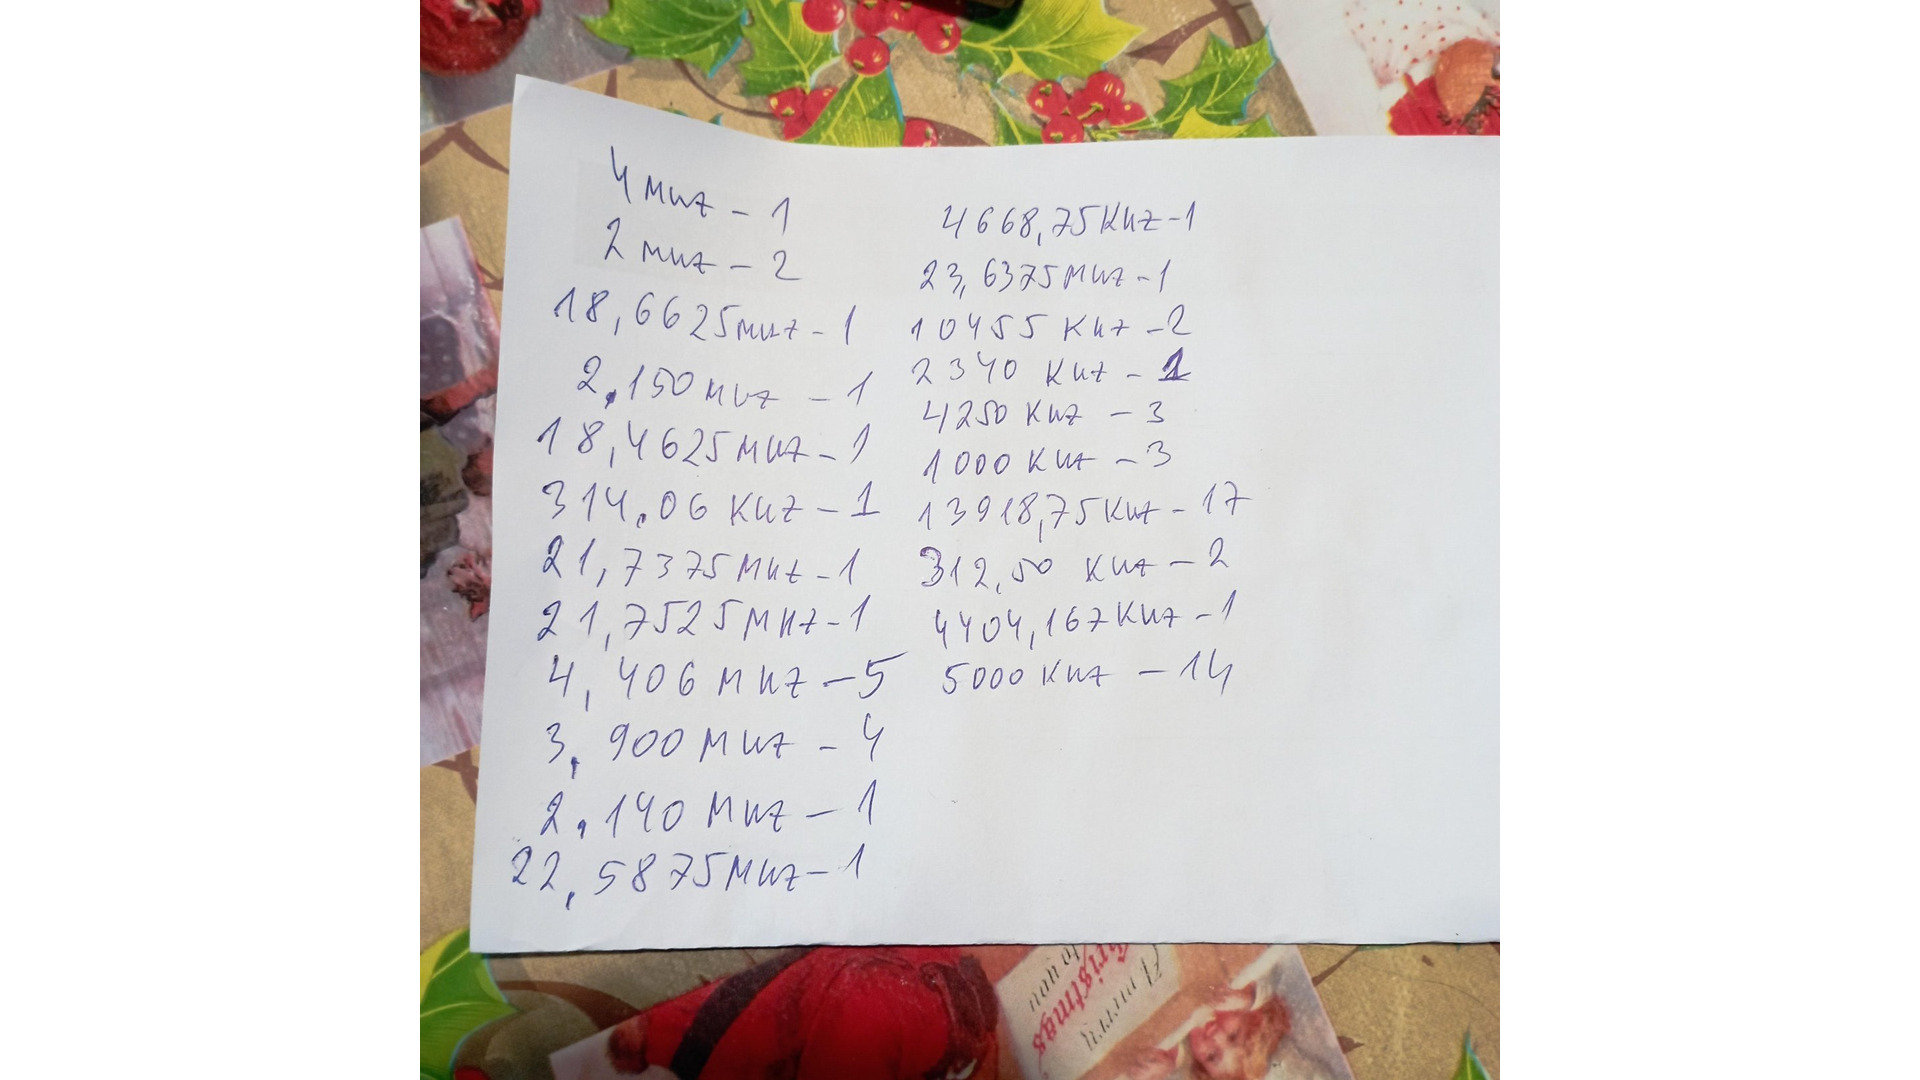 4 MHz - 1
2 MHz - 2
18,6625 MHz - 1
2,150 MHz - 1
18,4625 MHz - 1
314,06 KHz - 1
21,7375 MHz - 1
21,7525 MHz - 1
4,406 MHz - 5
3,900 MHz - 4
2,140 MHz - 1
22,5875 MHz - 1
4668,75 KHz - 1
23,6375 MHz - 1
10455 KHz - 2
2340 KHz - 1
4250 KHz - 3
1000 KHz - 3
13918,75 KHz - 17
312,50 KHz - 2
4404,167 KHz - 1
5000 KHz - 14
A merry
Christmas
to you